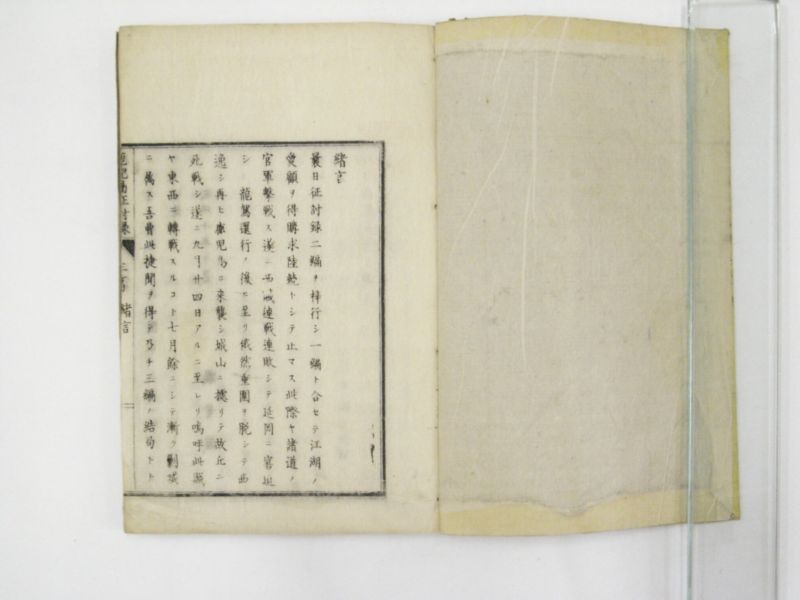 緒言
曩日征討録二編ヲ梓行シ一編ト合セテ江湖ノ
愛顧ヲ得購求陸続トシテ止マス此際ヤ諸道ノ
官軍撃戦ス遂ニ西賊連戦連敗シテ延岡ニ窘
シ 龍駕還行ノ後ニ至リ俄然重囲ヲ脱シテ
逸シ再ヒ鹿児島ニ来襲シ城山ニ據リテ故丘ニ
死戦シ遂ニ九月廿四日アルニ至レリ嗚呼此賊
ヤ東西ニ轉戦スルコト七月餘ニシテ漸ク剿
ニ属ス吾曹此捷聞ヲ得テ乃チ三編ノ結局トト
鹿児島征討録 三 緒言 一